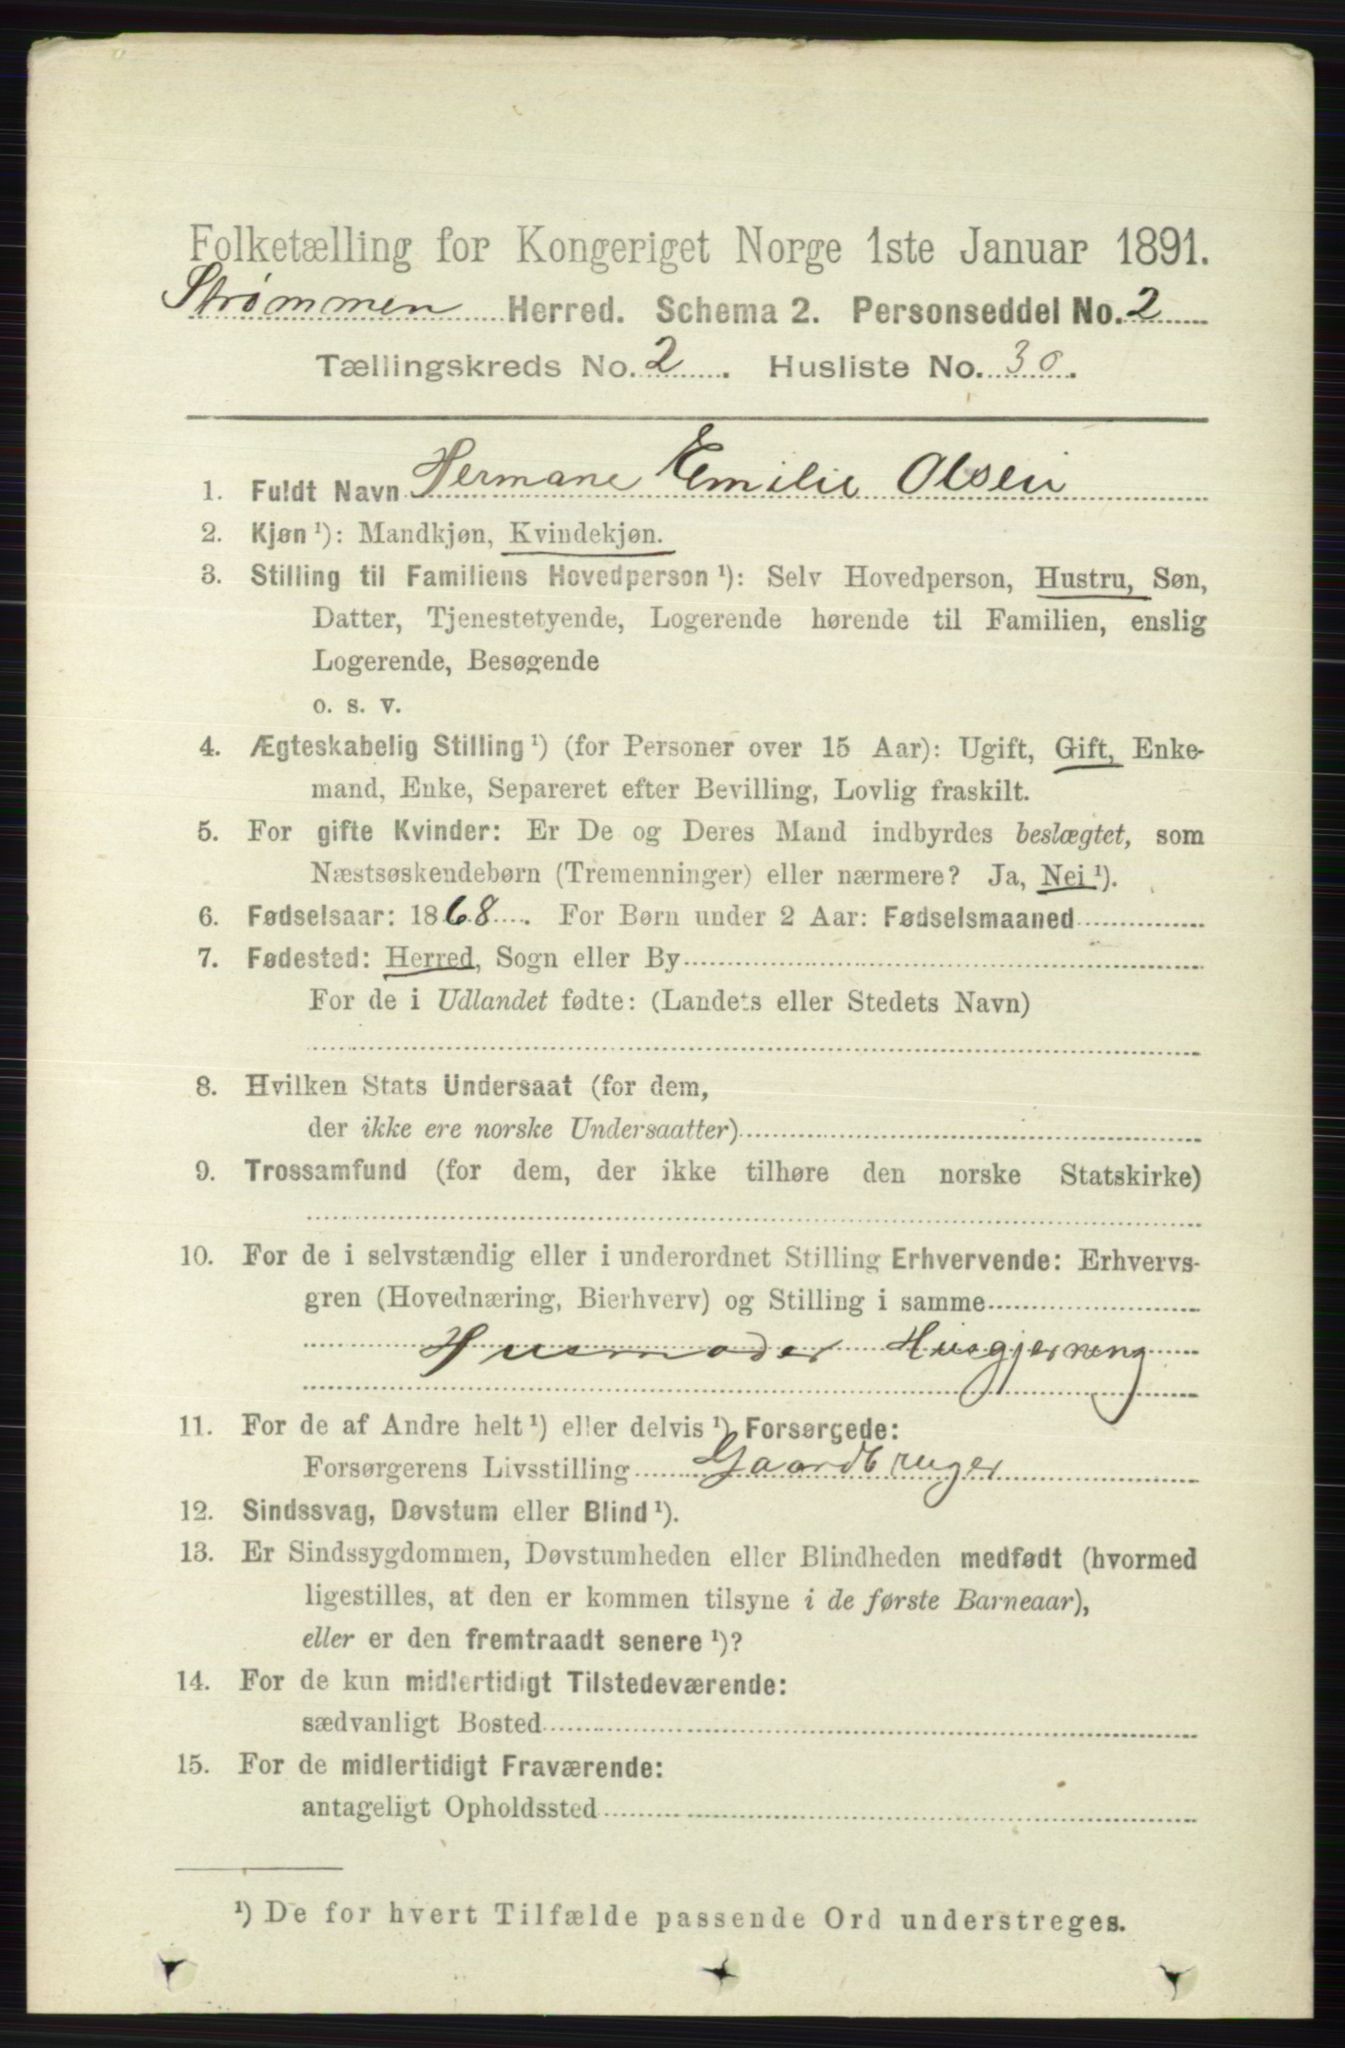 Folketælling for Kongeriget Norge 1ste Januar 1891.
Strømmen Herred. Schema 2. Personseddel No. 2
Tællingskreds No. 2. Husliste No. 30.
1. Fuldt Navn Hermane Emilie Olsen
2. Kjøn ¹): Mandkjøn, Kvindekjøn.
3. Stilling til Familiens Hovedperson ¹): Selv Hovedperson, Hustru, Søn,
Datter, Tjenestetyende, Logerende hørende til Familien, enslig
Logerende, Besøgende
o. s. v.
4. Ægteskabelig Stilling ¹) (for Personer over 15 Aar): Ugift, Gift, Enke-
mand, Enke, Separeret efter Bevilling, Lovlig fraskilt.
5. For gifte Kvinder: Er De og Deres Mand indbyrdes beslægtet, som
Næstsøskendebørn (Tremenninger) eller nærmere? Ja, Nei ¹).
6. Fødselsaar: 1868. For Børn under 2 Aar: Fødselsmaaned
7. Fødested: Herred, Sogn eller By
For de i Udlandet fødte: (Landets eller Stedets Navn)
8. Hvilken Stats Undersaat (for dem,
der ikke ere norske Undersaatter)
9. Trossamfund (for dem, der ikke tilhøre den norske Statskirke)
10. For de i selvstændig eller i underordnet Stilling Erhvervende: Erhvervs-
gren (Hovednæring, Bierhverv) og Stilling i samme
Husmoder Husgjerning
11. For de af Andre helt ¹) eller delvis ¹) Forsørgede:
Forsørgerens Livsstilling Gaardbruger
12. Sindssvag, Døvstum eller Blind ¹).
13. Er Sindssygdommen, Døvstumheden eller Blindheden medfødt (hvormed
ligestilles, at den er kommen tilsyne i de første Barneaar),
eller er den fremtraadt senere ¹)?
14. For de kun midlertidigt Tilstedeværende:
sædvanligt Bosted
15. For de midlertidigt Fraværende:
antageligt Opholdssted
¹) De for hvert Tilfælde passende Ord understreges.